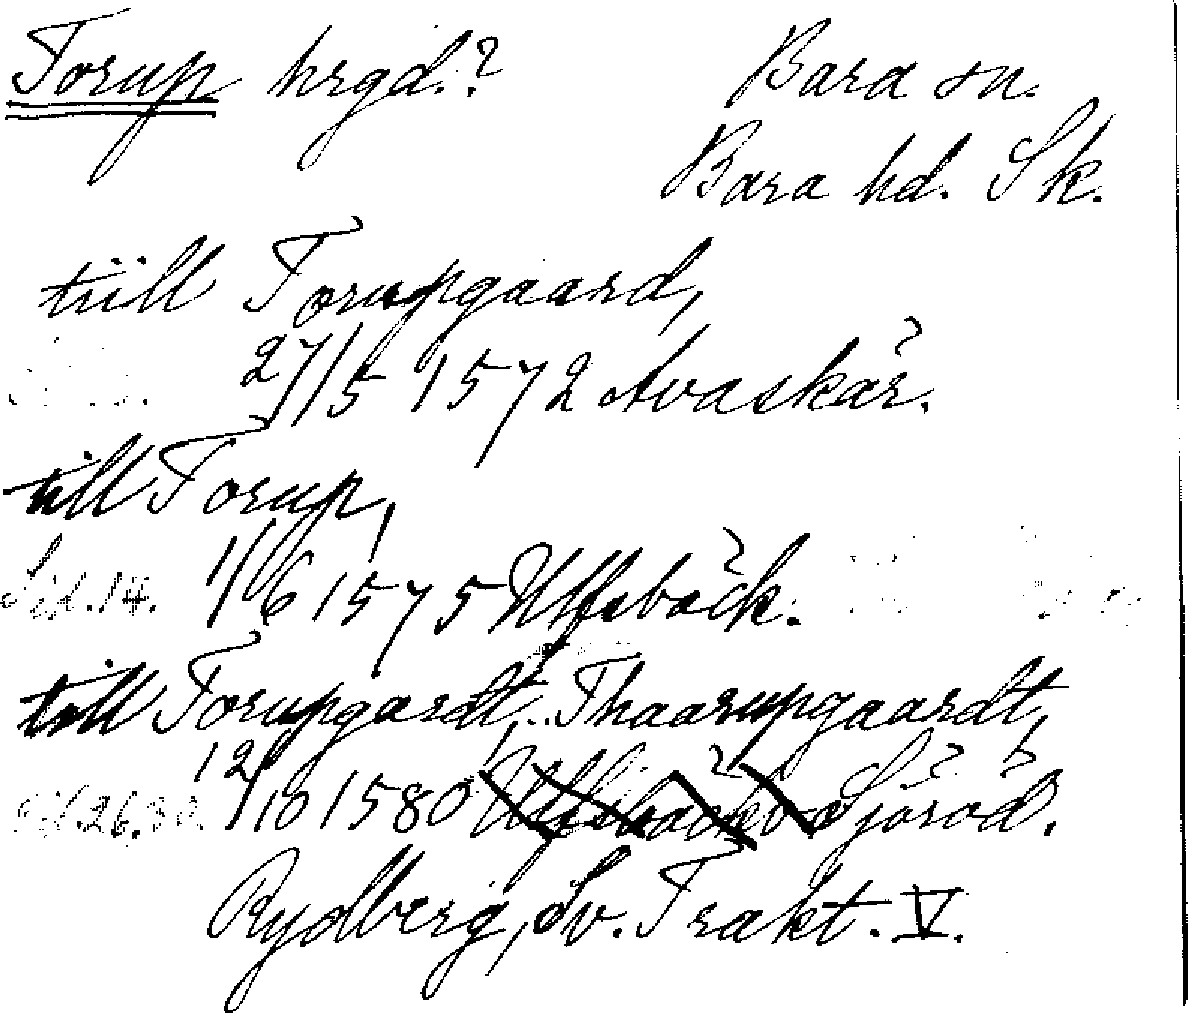 Torup hrgd.? Bara sn.
Bara hd. Sk.
tiill Torupgaard,
27/5 1572 Avaskär.
till Torup,
Sid.14. 1/6 1575 Ulfsbäck.
till Torupgardt, Thaarupgaardt,
26.30. 12/10 1580 Sjöröd.
Rydberg, Sv. Trakt. V.